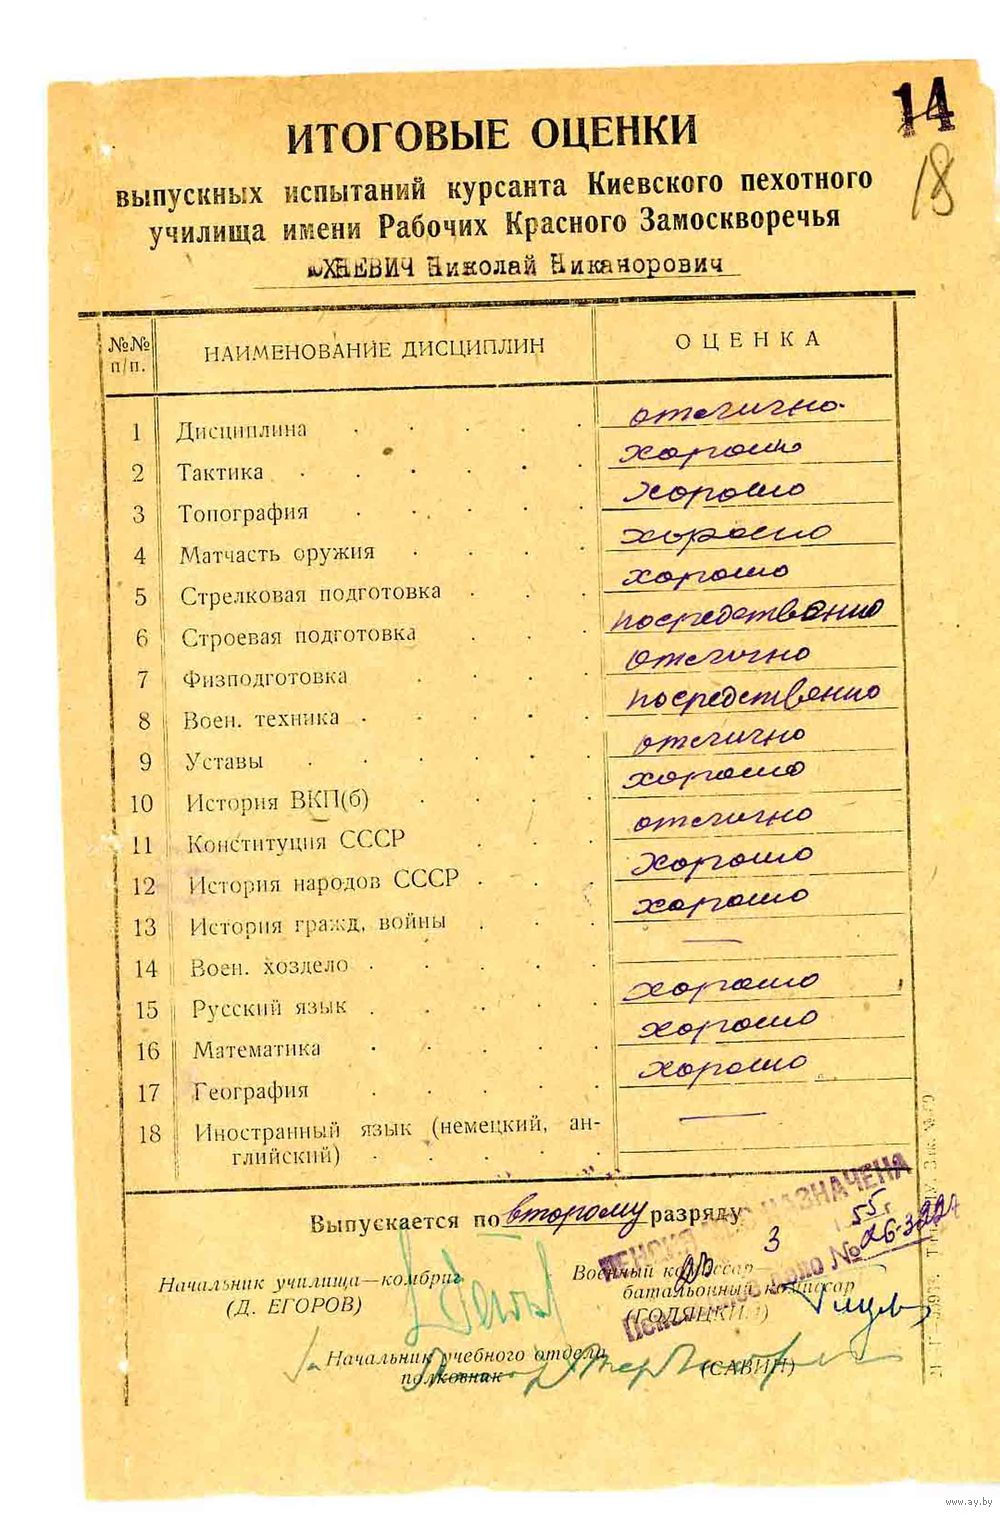 14
18
ИТОГОВЫЕ ОЦЕНКИ
выпускных испытаний курсанта Киевского пехотного
училища имени Рабочих Красного Замоскворечья
ЮХНЕВИЧ Николай Никанорович
№№ п/п. НАИМЕНОВАНИЕ ДИСЦИПЛИН ОЦЕНКА
1 Дисциплина . . . . . отлично
2 Тактика . . . . . . хорошо
3 Топография . . . . . хорошо
4 Матчасть оружия . . . . хорошо
5 Стрелковая подготовка . . . хорошо
6 Строевая подготовка . . . посредственно
7 Физподготовка . . . . отлично
8 Воен. техника . . . . . посредственно
9 Уставы . . . . . . отлично
10 История ВКП(б) . . . . хорошо
11 Конституция СССР . . . отлично
12 История народов СССР . . . хорошо
13 История гражд. войны . . . хорошо
14 Воен. хоздело . . . . . —
15 Русский язык . . . . . хорошо
16 Математика . . . . . хорошо
17 География . . . . . хорошо
18 Иностранный язык (немецкий, ан-
глийский) . . . . . —
Выпускается по второму разряду
ПЕНСИЯ НАЗНАЧЕНА
3 55 г.
дело № 26-3224
Начальник училища—комбриг
(Д. ЕГОРОВ)
Военный комиссар—
батальонный комиссар
(ГОЛЯЦКИЙ)
Начальник учебного отдела
полковник (САВИН)
www.ay.by